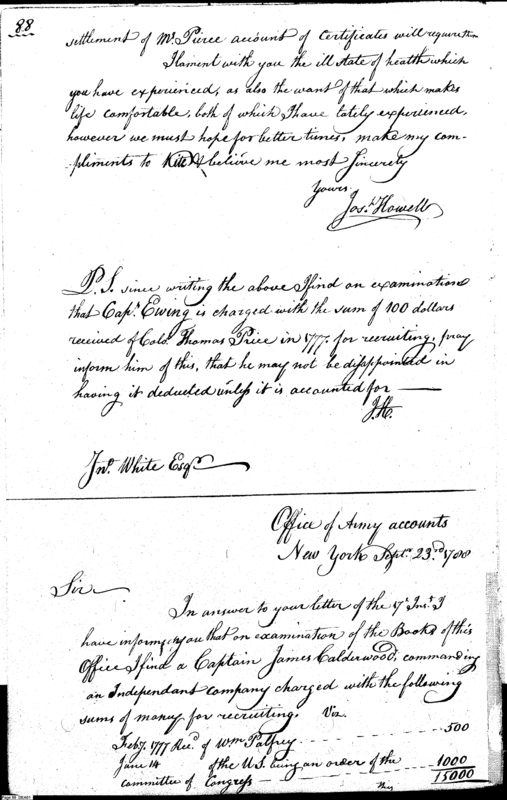 88
settlement of Mr. Pierce account of Certificates will require them
I lament with you the ill state of health which
you have experienced, as also the want of that which makes
life comfortable, both of which I have lately experienced,
however we must hope for better times, make my com-
-pliments to Kitty & believe me most Sincerely
Yours
Jos. Howell
P.S. since writing the above I find on examination
that Capt. Ewing is charged with the sum of 100 dollars
received of Colo. Thomas Price in 1777. for recruiting, pray
inform him of this, that he may not be disappointed in
having it deducted unless it is accounted for —
J.H.
Jno. White Esqr.
Office of Army accounts
New York Sept. 23.d 1788
Sir
In answer to your letter of the 17th Inst. I
have inform'g you that on examination of the Books of this
Office I find a Captain James Calderwood, commanding
an Independant company charged with the following
sums of money for recruiting. Viz.
Feby. 1777 Recd. of Wm Palfrey — 500
June 14 of the U.S. being an order of the
committee of Congress — 1000
15000
this